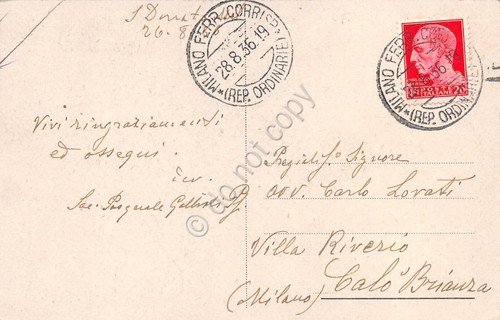 S Donat
26-8
MILANO FERR. CORRISP.
28.8.36.19
(REP. ORDINARIE)
MILANO FERR. CORR
36
(REP. ORDINARIE)
POSTE ITALIANE
20
Vivi ringraziamenti
ed ossequi.
Sac. Pasquale
Signore
avv. Carlo Lovati
Villa Riverio
Calò Brianza
(Milano)
© do not copy